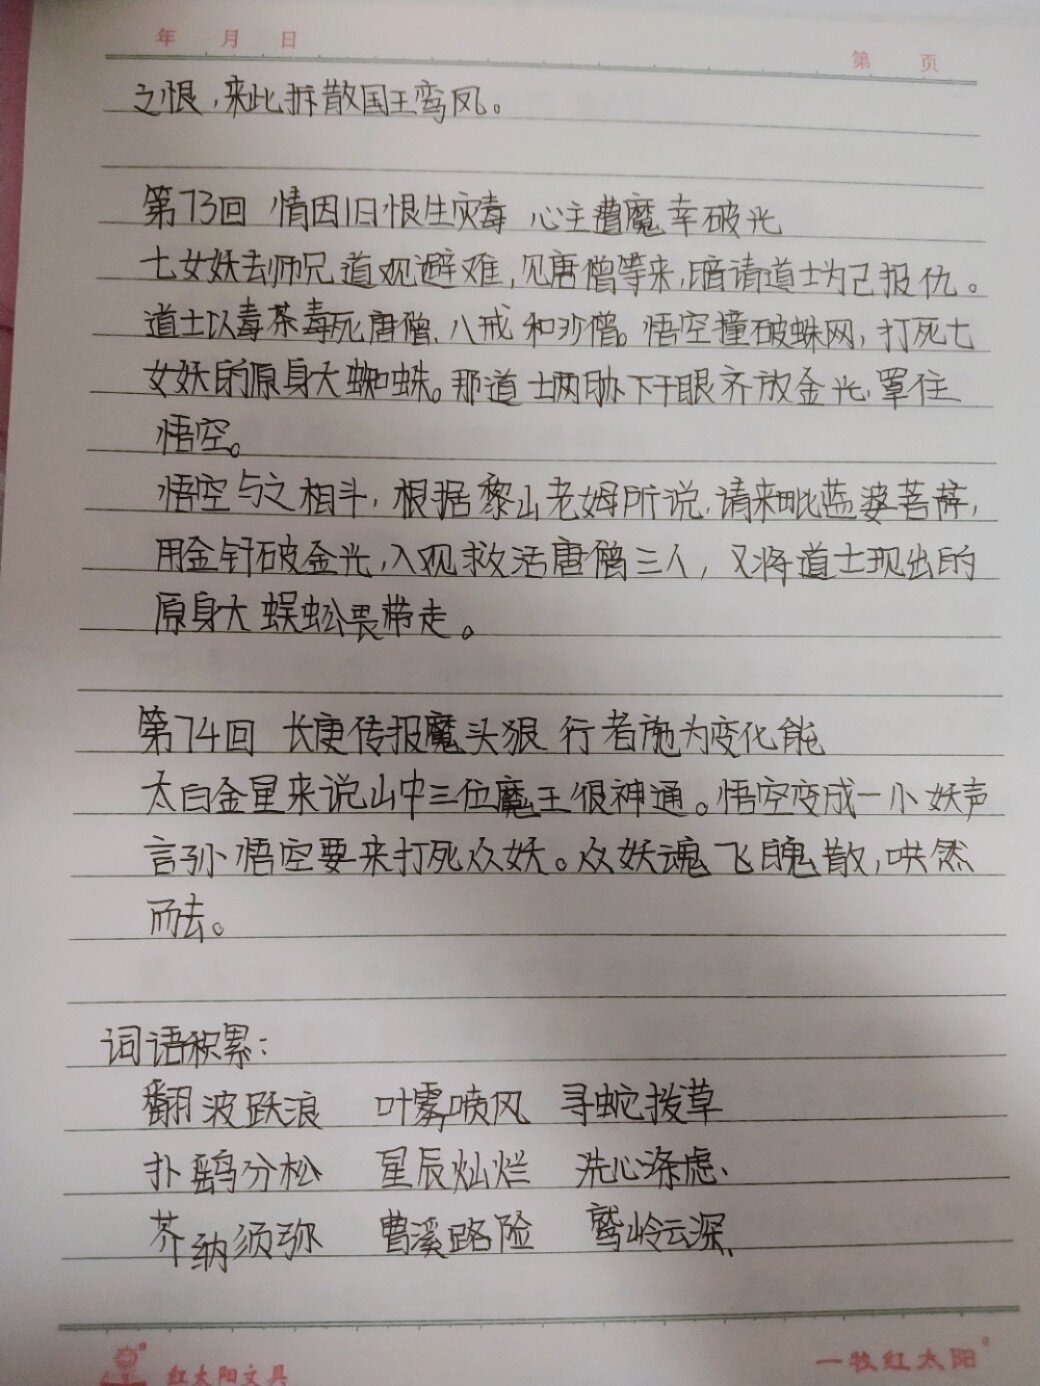 年 月 日
第 页
之恨,来此拆散国王鸾凤。
第73回 情因旧恨生灾毒 心主遭魔幸破光
七女妖去师兄道观避难,见唐僧等来,暗请道士为己报仇。
道士以毒茶毒死唐僧、八戒和沙僧。悟空撞破蛛网,打死七
女妖的原身大蜘蛛。那道士两胁下千眼齐放金光,罩住
悟空。
悟空与之相斗,根据黎山老姆所说,请来毗蓝婆菩萨,
用金针破金光,入观救活唐僧三人,又将道士现出的
原身大蜈蚣畏带走。
第74回 长庚传报魔头狠 行者施为变化能
太白金星来说山中三位魔王很神通。悟空变成一小妖声
言孙悟空要来打死众妖。众妖魂飞魄散,哄然
而去。
词语积累:
翻波跃浪 叶雾喷风 寻蛇拨草
扑鹞分松 星辰灿烂 洗心涤虑、
芥纳须弥 曹溪路险 鹫岭云深、
红太阳文具
一枚红太阳